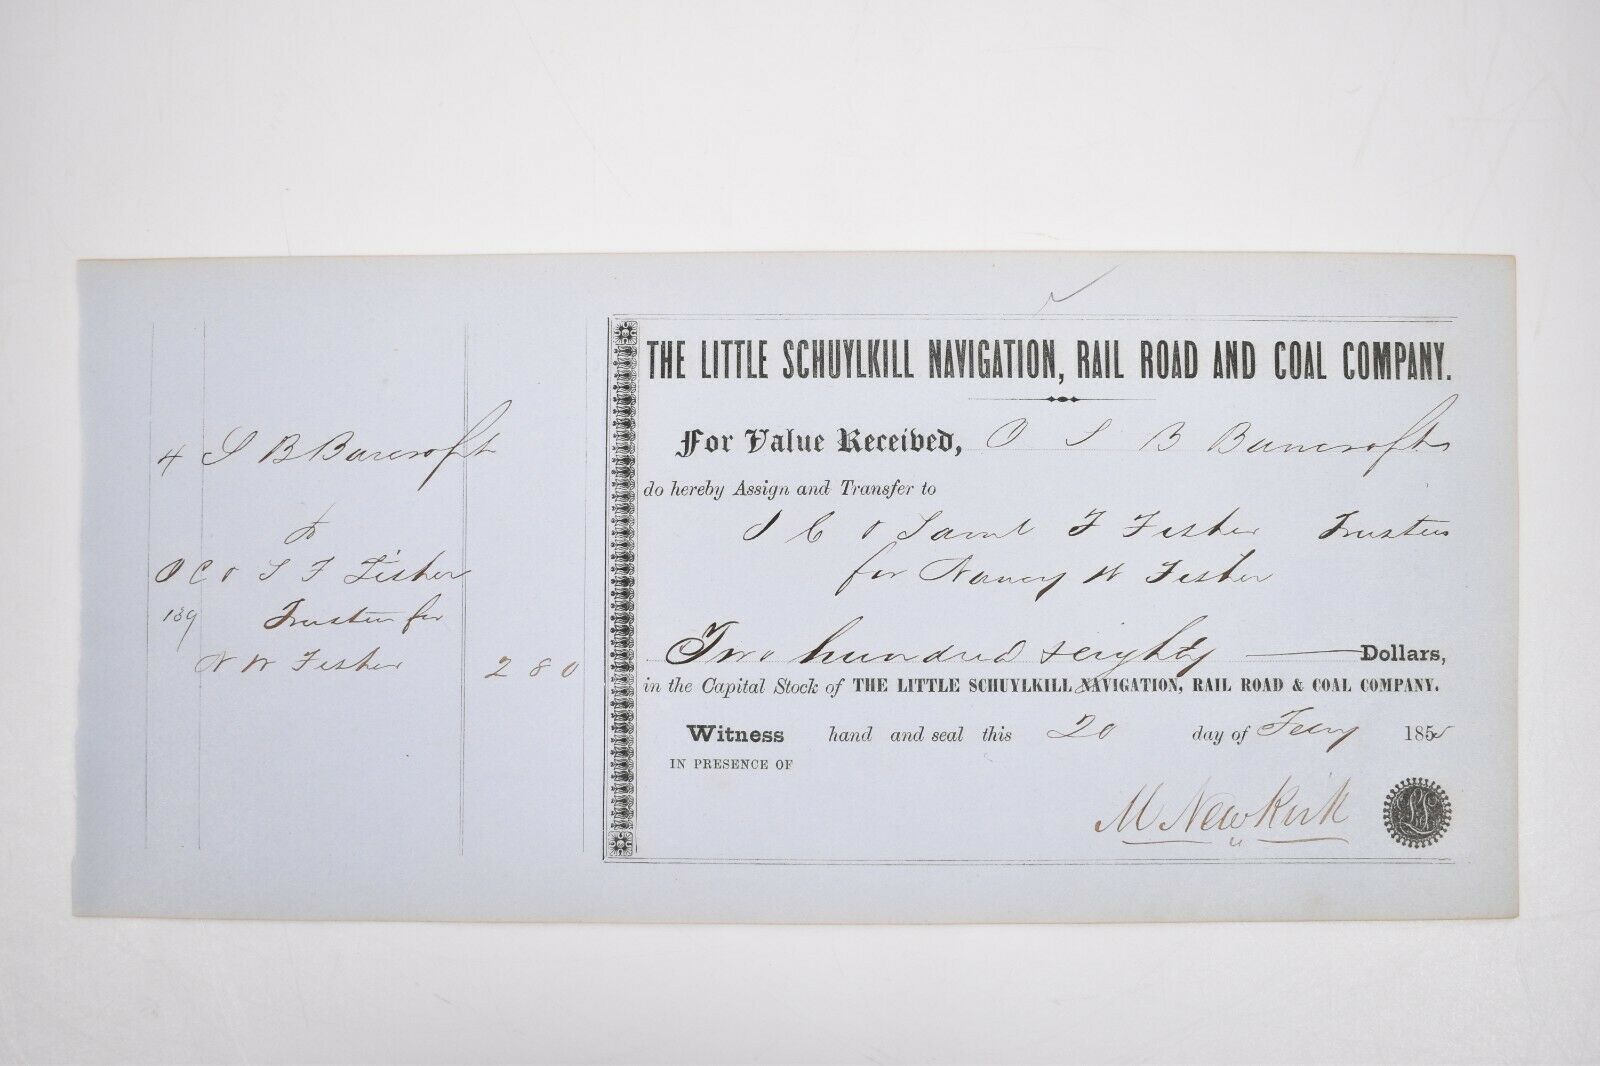 4 S B Bancroft
to
C & S F Fisher
139 Trustees for
N W Fisher 280
THE LITTLE SCHUYLKILL NAVIGATION, RAIL ROAD AND COAL COMPANY.
For Value Received, S B Bancroft
do hereby Assign and Transfer to
C & Saml F Fisher Trustees
for Nancy W Fisher
Two hundred & eighty Dollars,
in the Capital Stock of THE LITTLE SCHUYLKILL NAVIGATION, RAIL ROAD & COAL COMPANY.
Witness hand and seal this 20 day of Feby 185
IN PRESENCE OF
M NewKirk
LS